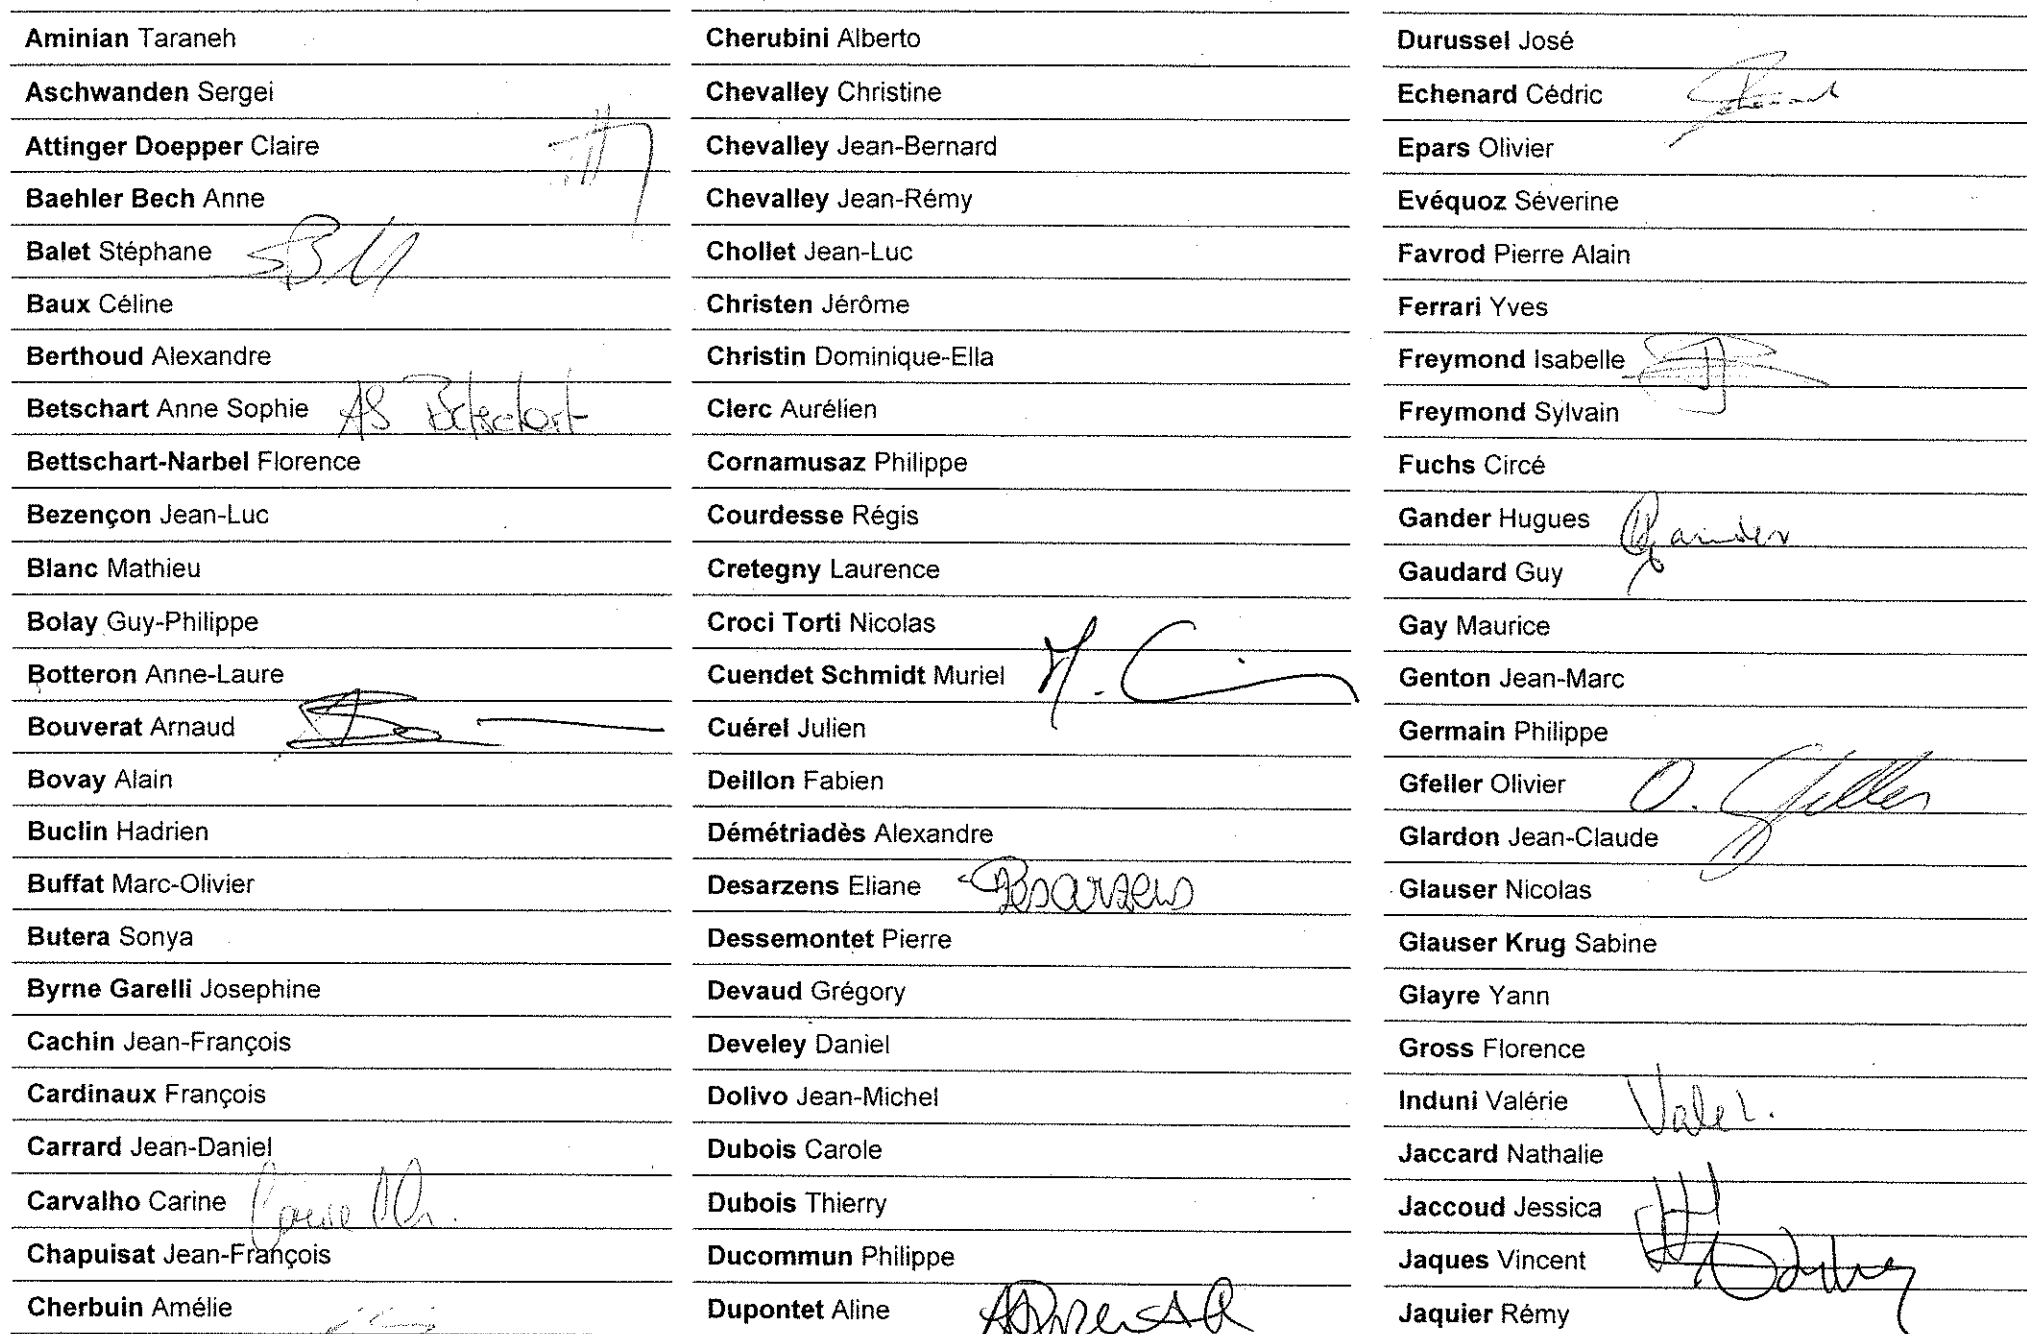 Aminian Taraneh
Aschwanden Sergei
Attinger Doepper Claire
Baehler Bech Anne
Balet Stéphane
Baux Céline
Berthoud Alexandre
Betschart Anne Sophie AS Betschart
Bettschart-Narbel Florence
Bezençon Jean-Luc
Blanc Mathieu
Bolay Guy-Philippe
Botteron Anne-Laure
Bouverat Arnaud
Bovay Alain
Buclin Hadrien
Buffat Marc-Olivier
Butera Sonya
Byrne Garelli Josephine
Cachin Jean-François
Cardinaux François
Carrard Jean-Daniel
Carvalho Carine
Chapuisat Jean-François
Cherbuin Amélie
Cherubini Alberto
Chevalley Christine
Chevalley Jean-Bernard
Chevalley Jean-Rémy
Chollet Jean-Luc
Christen Jérôme
Christin Dominique-Ella
Clerc Aurélien
Cornamusaz Philippe
Courdesse Régis
Cretegny Laurence
Croci Torti Nicolas
Cuendet Schmidt Muriel
Cuérel Julien
Deillon Fabien
Démétriadès Alexandre
Desarzens Eliane Desarzens
Dessemontet Pierre
Devaud Grégory
Develey Daniel
Dolivo Jean-Michel
Dubois Carole
Dubois Thierry
Ducommun Philippe
Dupontet Aline
Durussel José
Echenard Cédric
Epars Olivier
Evéquoz Séverine
Favrod Pierre Alain
Ferrari Yves
Freymond Isabelle
Freymond Sylvain
Fuchs Circé
Gander Hugues Gander
Gaudard Guy
Gay Maurice
Genton Jean-Marc
Germain Philippe
Gfeller Olivier O. Gfeller
Glardon Jean-Claude
Glauser Nicolas
Glauser Krug Sabine
Glayre Yann
Gross Florence
Induni Valérie
Jaccard Nathalie
Jaccoud Jessica
Jaques Vincent
Jaquier Rémy